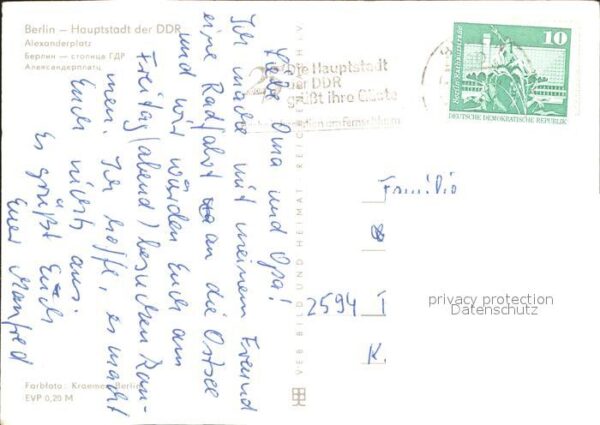 Berlin — Hauptstadt der DDR
Alexanderplatz
Берлин — столица ГДР
Александерплатц
Liebe Oma und Opa!
Ich mache mit meinem Freund
eine Radfahrt an die Ostsee
und wir würden Euch am
Freitag (abend) besuchen kom-
men. Ich hoffe, es macht
Euch nichts aus.
Es grüßt Euch
Euer Manfred
Farbfoto: Kraemer, Berlin
EVP 0,20 M
VEB BILD UND HEIMAT REICHENBACH
Die Hauptstadt
der DDR
grüßt ihre Gäste
am Fernsehturm
10
Berlin, Rathausstraße
DEUTSCHE DEMOKRATISCHE REPUBLIK
Familie
2594 I
K.
privacy protection
Datenschutz